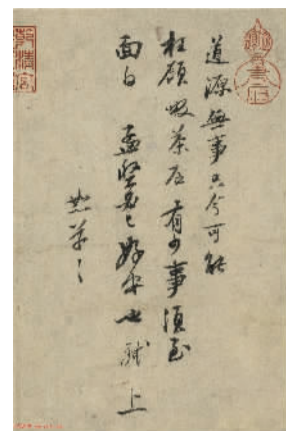 道源無事只今可能
枉顧啜茶否有少事須至
面白 孟堅必已好安也 軾上
恕草草
乾清宮